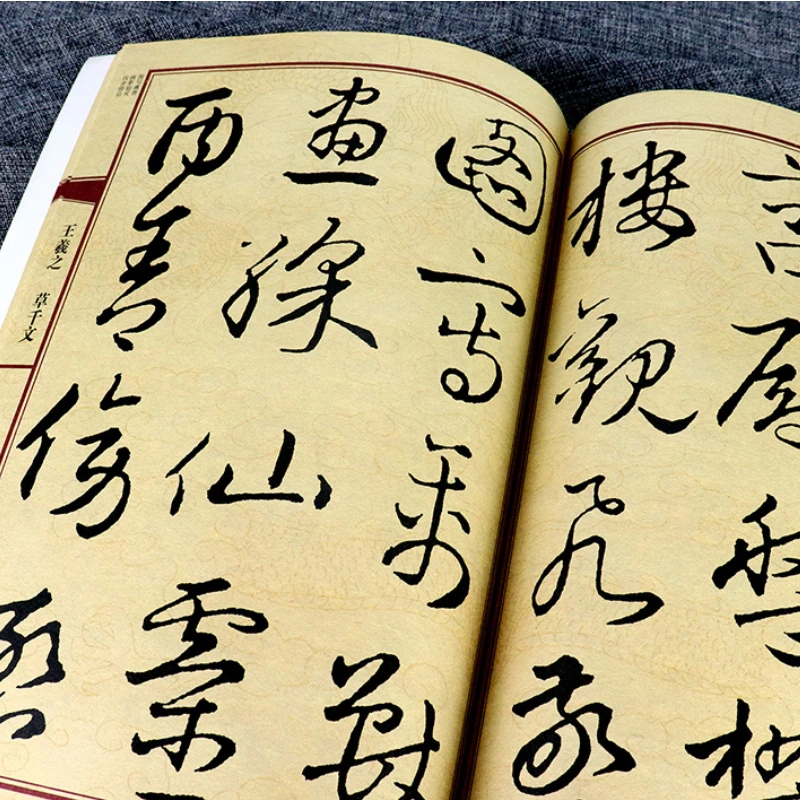 宮殿盤鬱
樓觀飛驚
圖寫禽獸
畫綵仙靈
丙舍傍啓
王羲之 草千文